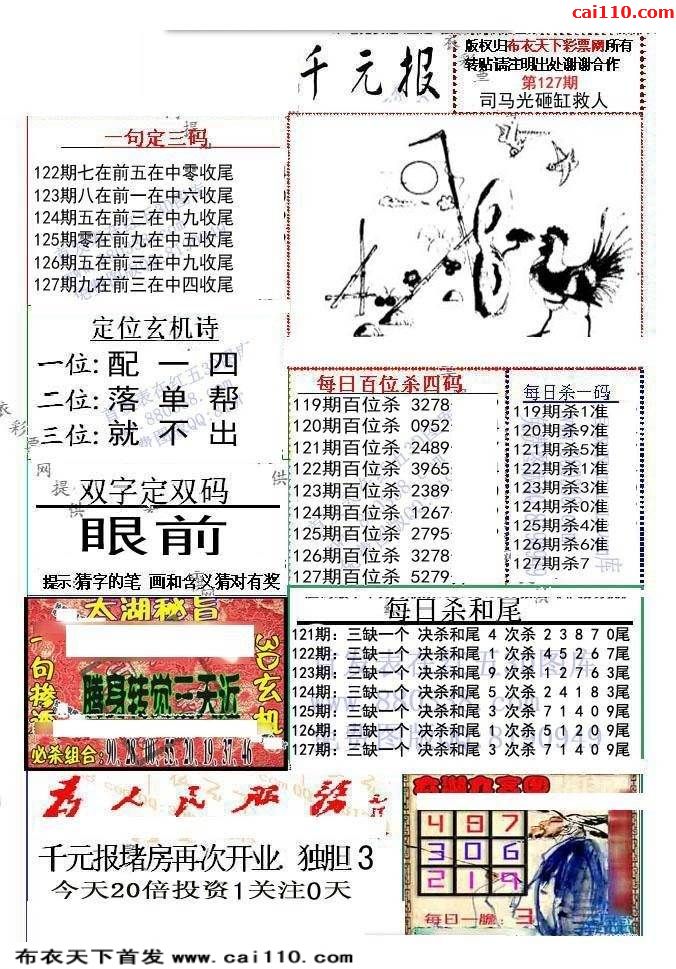 cai110.com
千元报
版权归布衣天下彩票网所有
转贴请注明出处谢谢合作
第127期
司马光砸缸救人
一句定三码
122期七在前五在中零收尾
123期八在前一在中六收尾
124期五在前三在中九收尾
125期零在前九在中五收尾
126期五在前三在中九收尾
127期九在前三在中四收尾
定位玄机诗
一位:配一四
二位:落单帮
三位:就不出
双字定双码
眼前
提示:猜字的笔 画和含义猜对有奖
每日百位杀四码
119期百位杀 3278
120期百位杀 0952
121期百位杀 2489
122期百位杀 3965
123期百位杀 2389
124期百位杀 1267
125期百位杀 2795
126期百位杀 3278
127期百位杀 5279
每日杀一码
119期杀1准
120期杀9准
121期杀5准
122期杀1准
123期杀3准
124期杀0准
125期杀4准
126期杀6准
127期杀7
太湖秘旨
3D玄机
随身转觉三天近
必杀组合:90.28.00.55.20.19.37.46
每日杀和尾
121期: 三缺一个 决杀和尾 4 次杀 2 3 8 7 0尾
122期: 三缺一个 决杀和尾 1 次杀 4 5 2 6 7尾
123期: 三缺一个 决杀和尾 0 次杀 1 9 7 6 3尾
124期: 三缺一个 决杀和尾 5 次杀 2 4 1 8 3尾
125期: 三缺一个 决杀和尾 3 次杀 7 1 4 0 9尾
126期: 三缺一个 决杀和尾 1 次杀 5 1 2 0 9尾
127期: 三缺一个 决杀和尾 3 次杀 7 1 4 0 9尾
为人民服务
千元报堵房再次开业 独胆 3
今天20倍投资1关注0天
4 8 7
3 0 6
2 1 9
每日一胆: 3
布衣天下首发 www.cai110.com